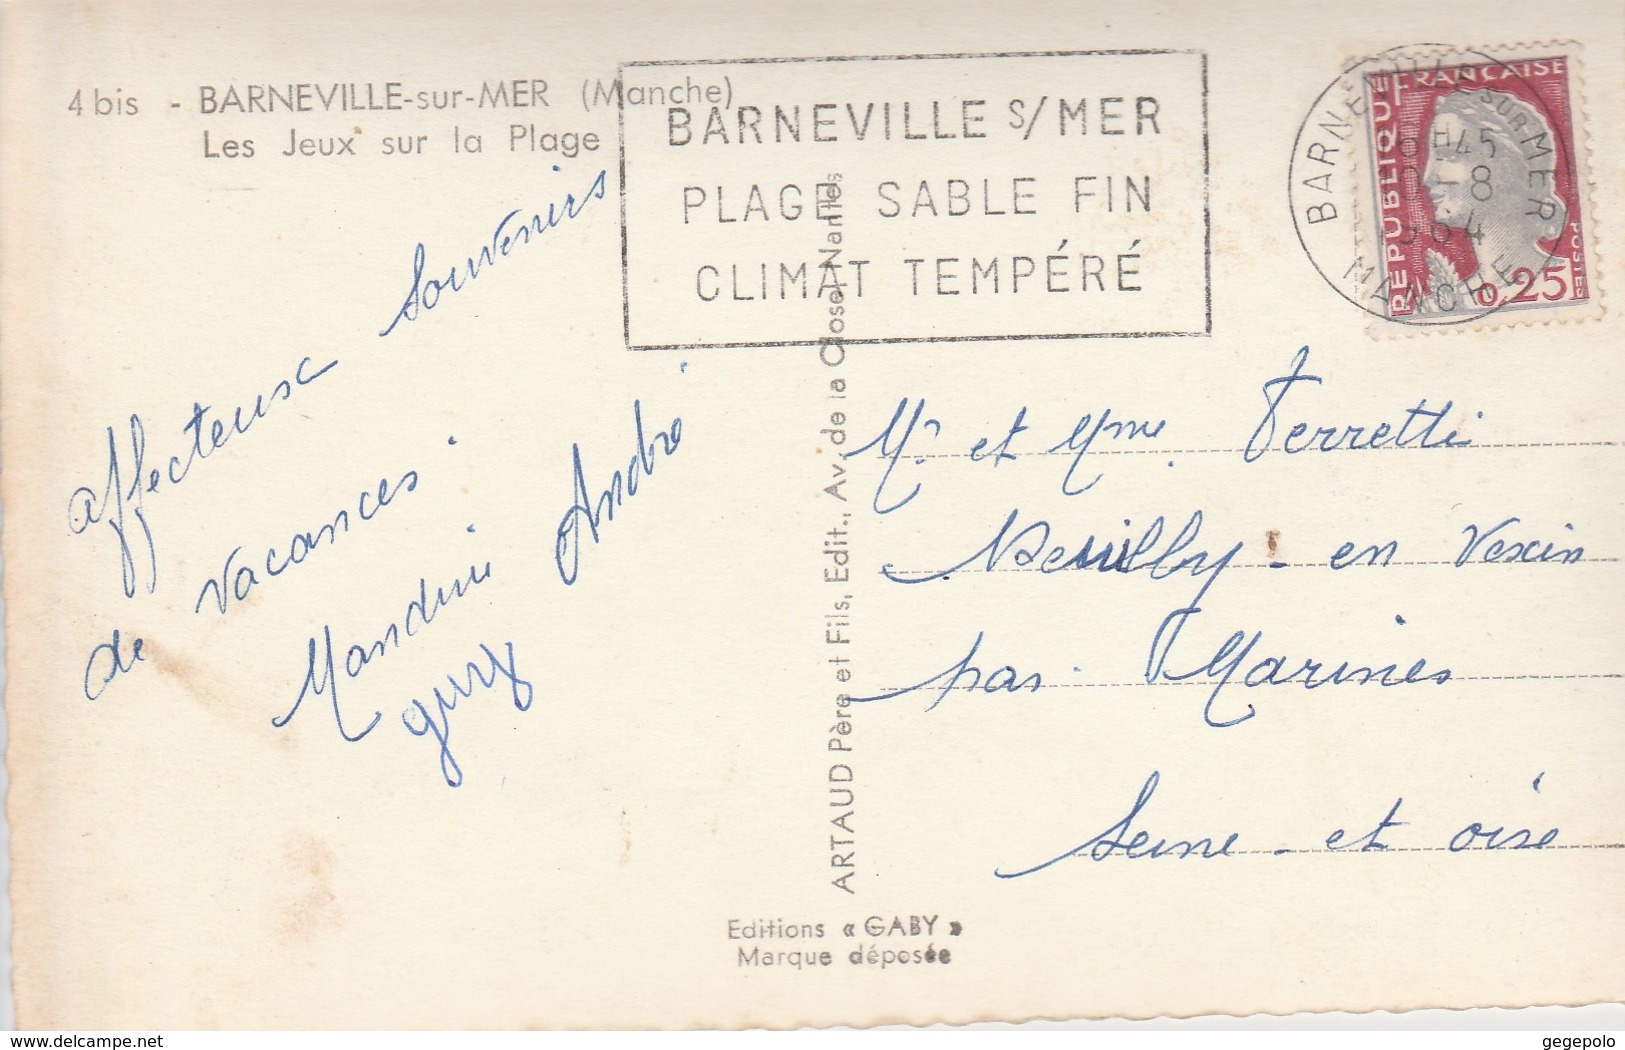 4 bis - BARNEVILLE-sur-MER (Manche)
Les Jeux sur la Plage
BARNEVILLE S/MER
PLAGE SABLE FIN
CLIMAT TEMPÉRÉ
BARNEVILLE SUR MER
H45
-8
1964
MANCHE
RÉPUBLIQUE FRANÇAISE
POSTES
0,25
affectueux Souvenirs
de vacances.
Mandrini André
guy
Mr et Mme Ferretti
Neuilly - en Vexin
par Marines
Seine - et oise
ARTAUD Père et Fils, Edit., Av. de la Close, Nantes
Editions « GABY »
Marque déposée
www.delcampe.net
gegepolo